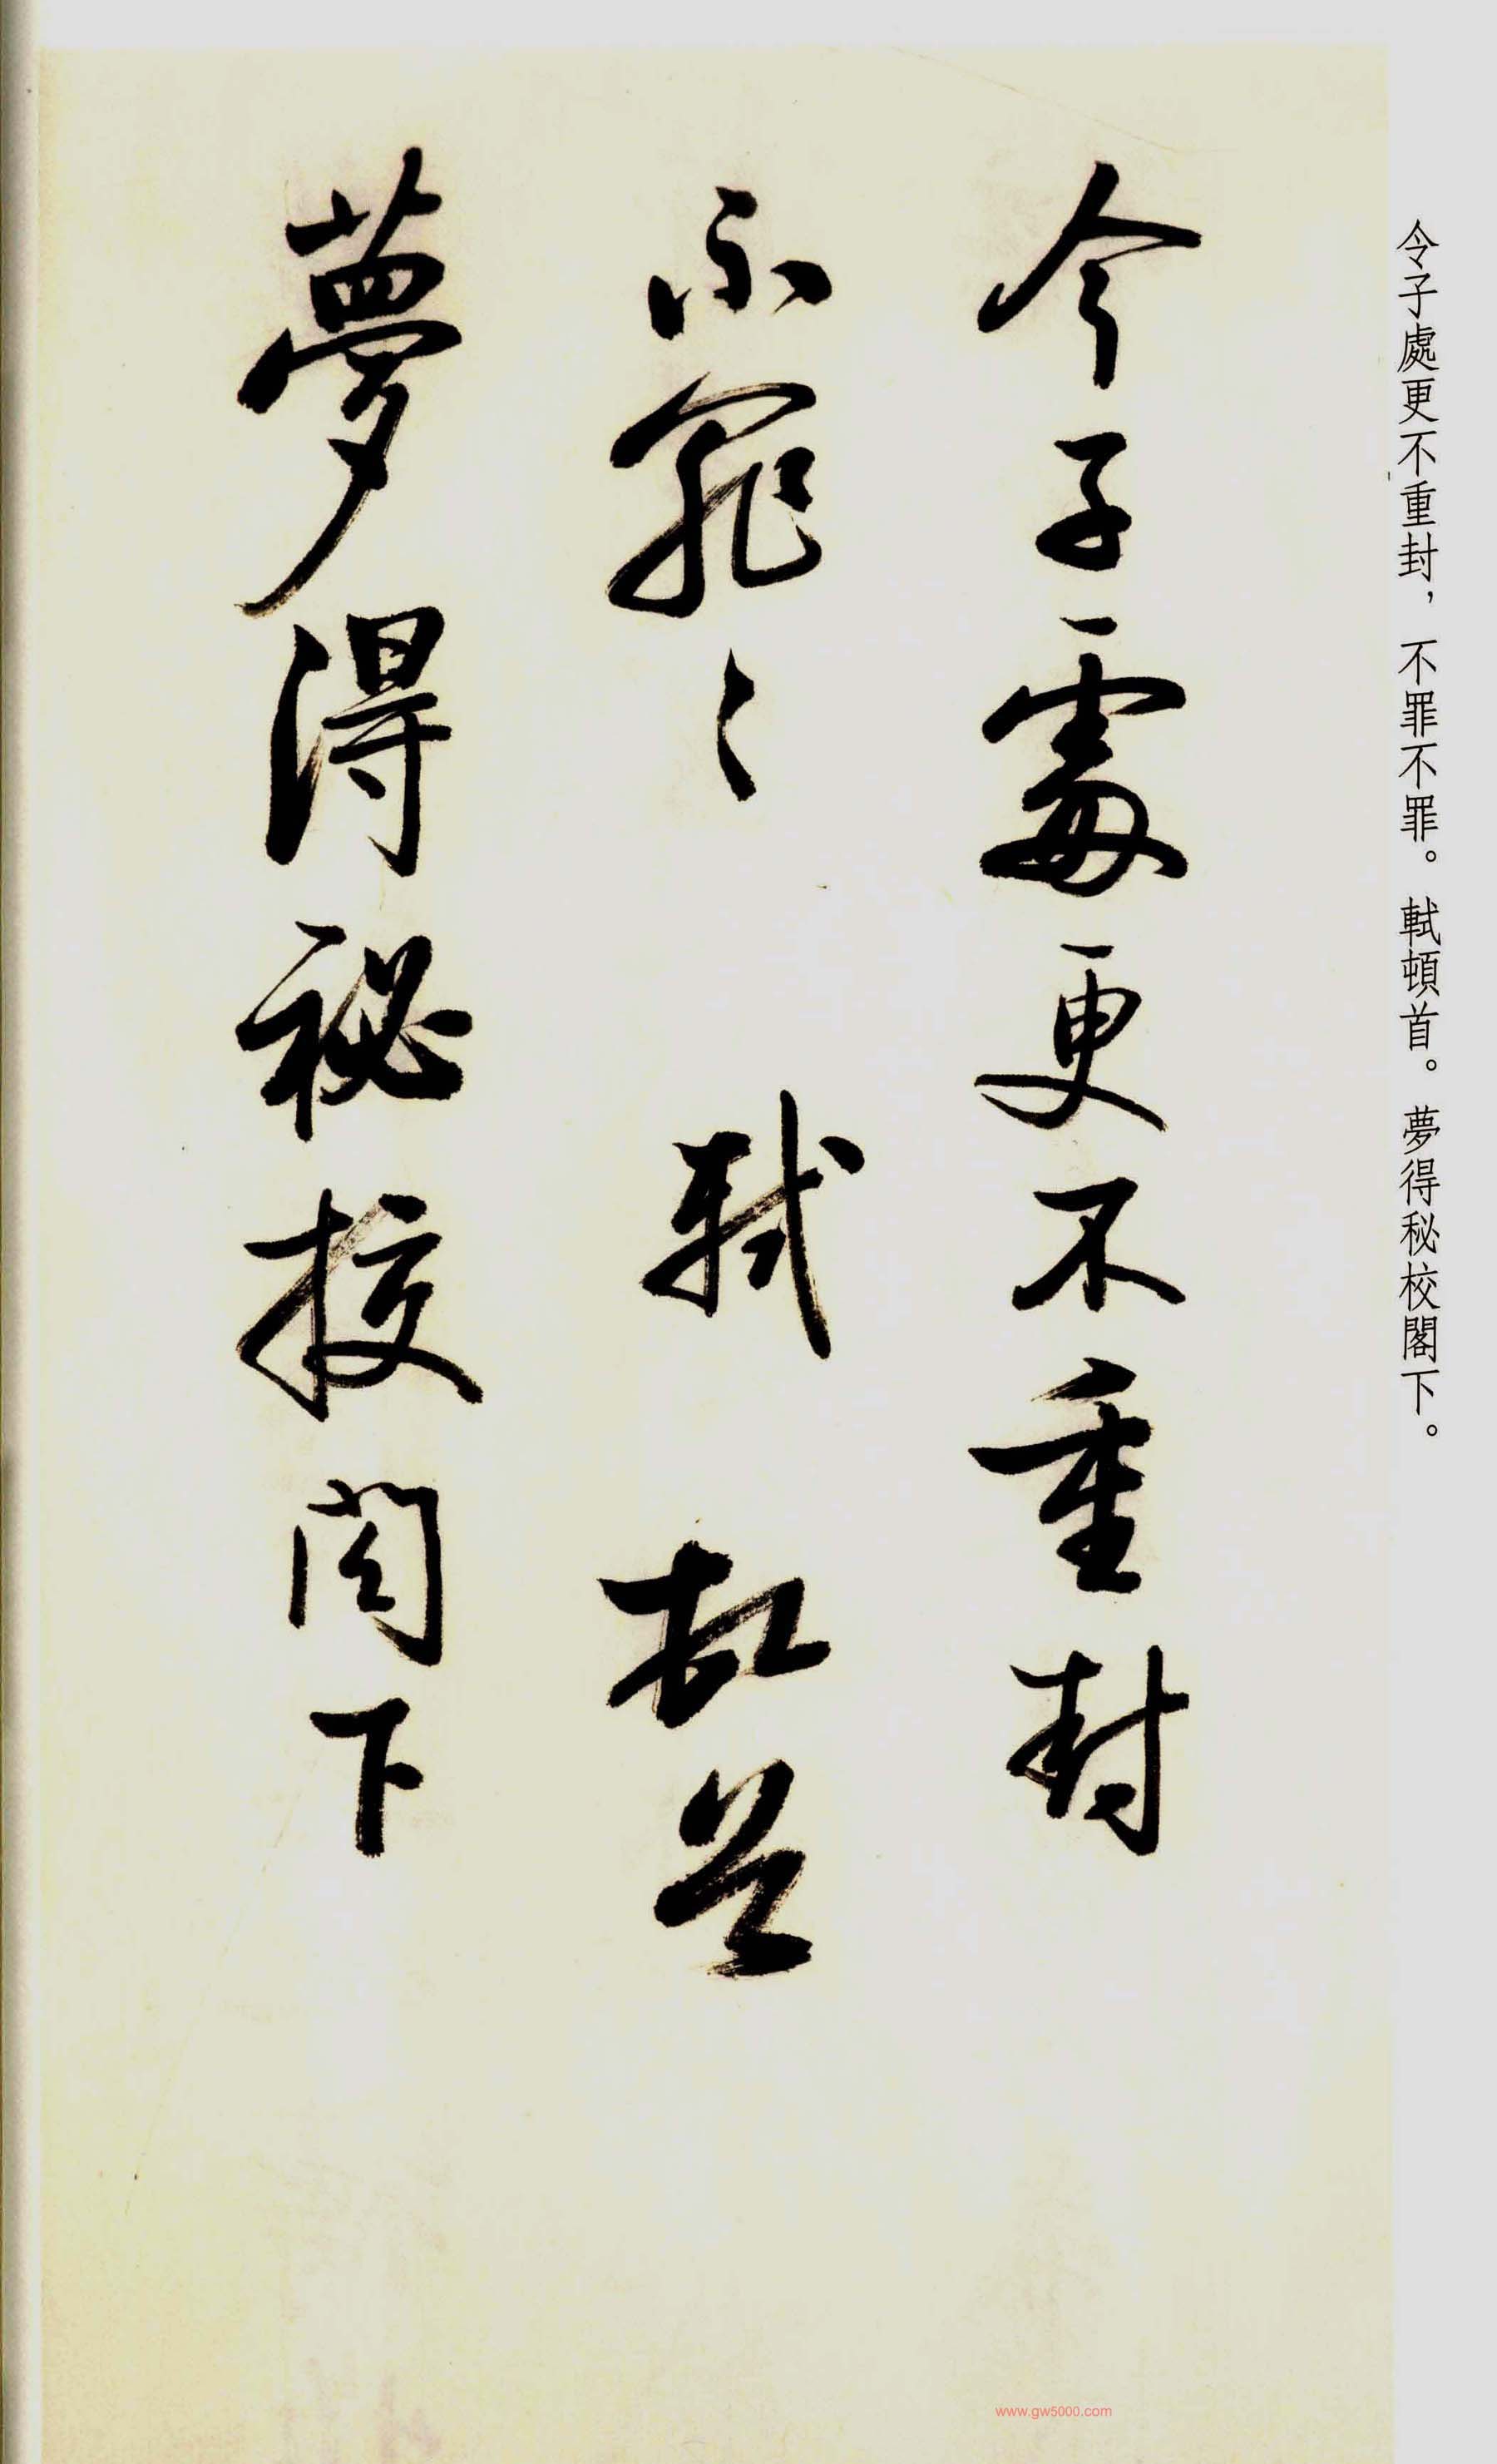 令子處更不重封，不罪不罪。軾頓首。夢得秘校閣下。
令子處更不重封
不罪〻軾頓首
夢得秘校閣下
www.gw5000.com